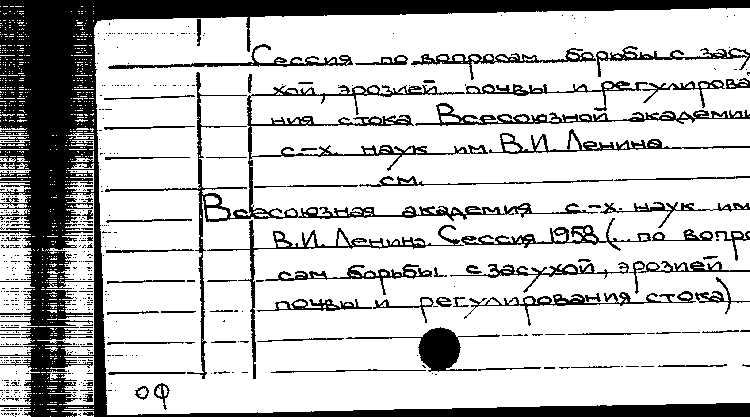 Сессия по вопросам борьбы с засу
хой, эрозией почвы и регулирова
ния стока Всесоюзной академии
с.-х. наук им. В.И. Ленина.
см.
Всесоюзная академия с.-х. наук им
В.И. Ленина. Сессия 1958 (. по вопро
сам борьбы с засухой, эрозией
почвы и регулирования стока)
оф